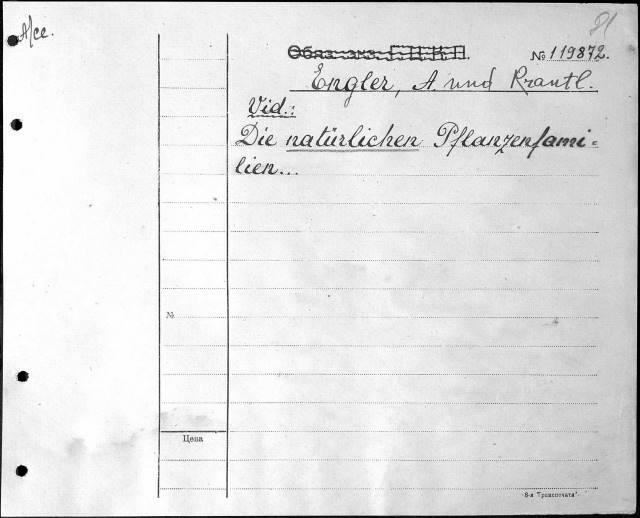 А/се.
Обяз. экз. Г.Ц.К.П.
№ 119872.
Engler, A. und Prantl.
Vid.:
Die natürlichen Pflanzenfami-
lien...
№
Цена
8-я "Транспечать"